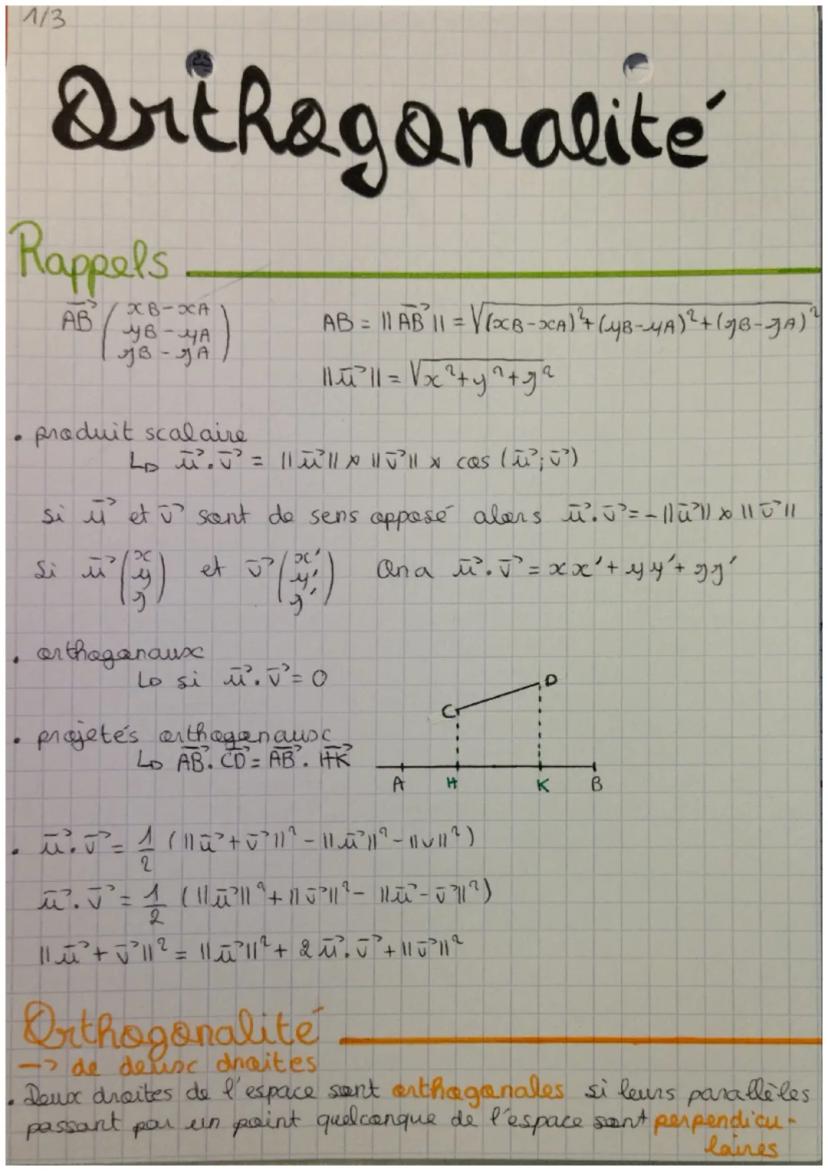 1/3
Orthogonalité
Rappels
AB⃗ (xB-xA
yB-yA
zB-zA)
AB = ||AB⃗|| = √(xB-xA)²+(yB-yA)²+(zB-zA)²
||u⃗|| = √x²+y²+z²
• produit scalaire
↳ u⃗.v⃗ = ||u⃗|| x ||v⃗|| x cos (u⃗;v⃗)
si u⃗ et v⃗ sont de sens opposé alors u⃗.v⃗=-||u⃗|| x ||v⃗||
Si u⃗(x y z) et v⃗(x' y' z') On a u⃗.v⃗=xx'+yy'+zz'
• orthogonaux
↳ si u⃗.v⃗=0
• projetés orthogonaux
↳ AB⃗.CD⃗=AB⃗.HK⃗
C D
A H K B
• u⃗.v⃗ = 1/2 (||u⃗+v⃗||²-||u⃗||²-||v||²)
u⃗.v⃗ = 1/2 (||u⃗||²+||v⃗||²-||u⃗-v⃗||²)
||u⃗+v⃗||² = ||u⃗||²+2u⃗.v⃗+||v⃗||²
Orthogonalité
→ de deux droites
• Deux droites de l'espace sont orthogonales si leurs parallèles
passant par un point quelconque de l'espace sont perpendicu-
laires